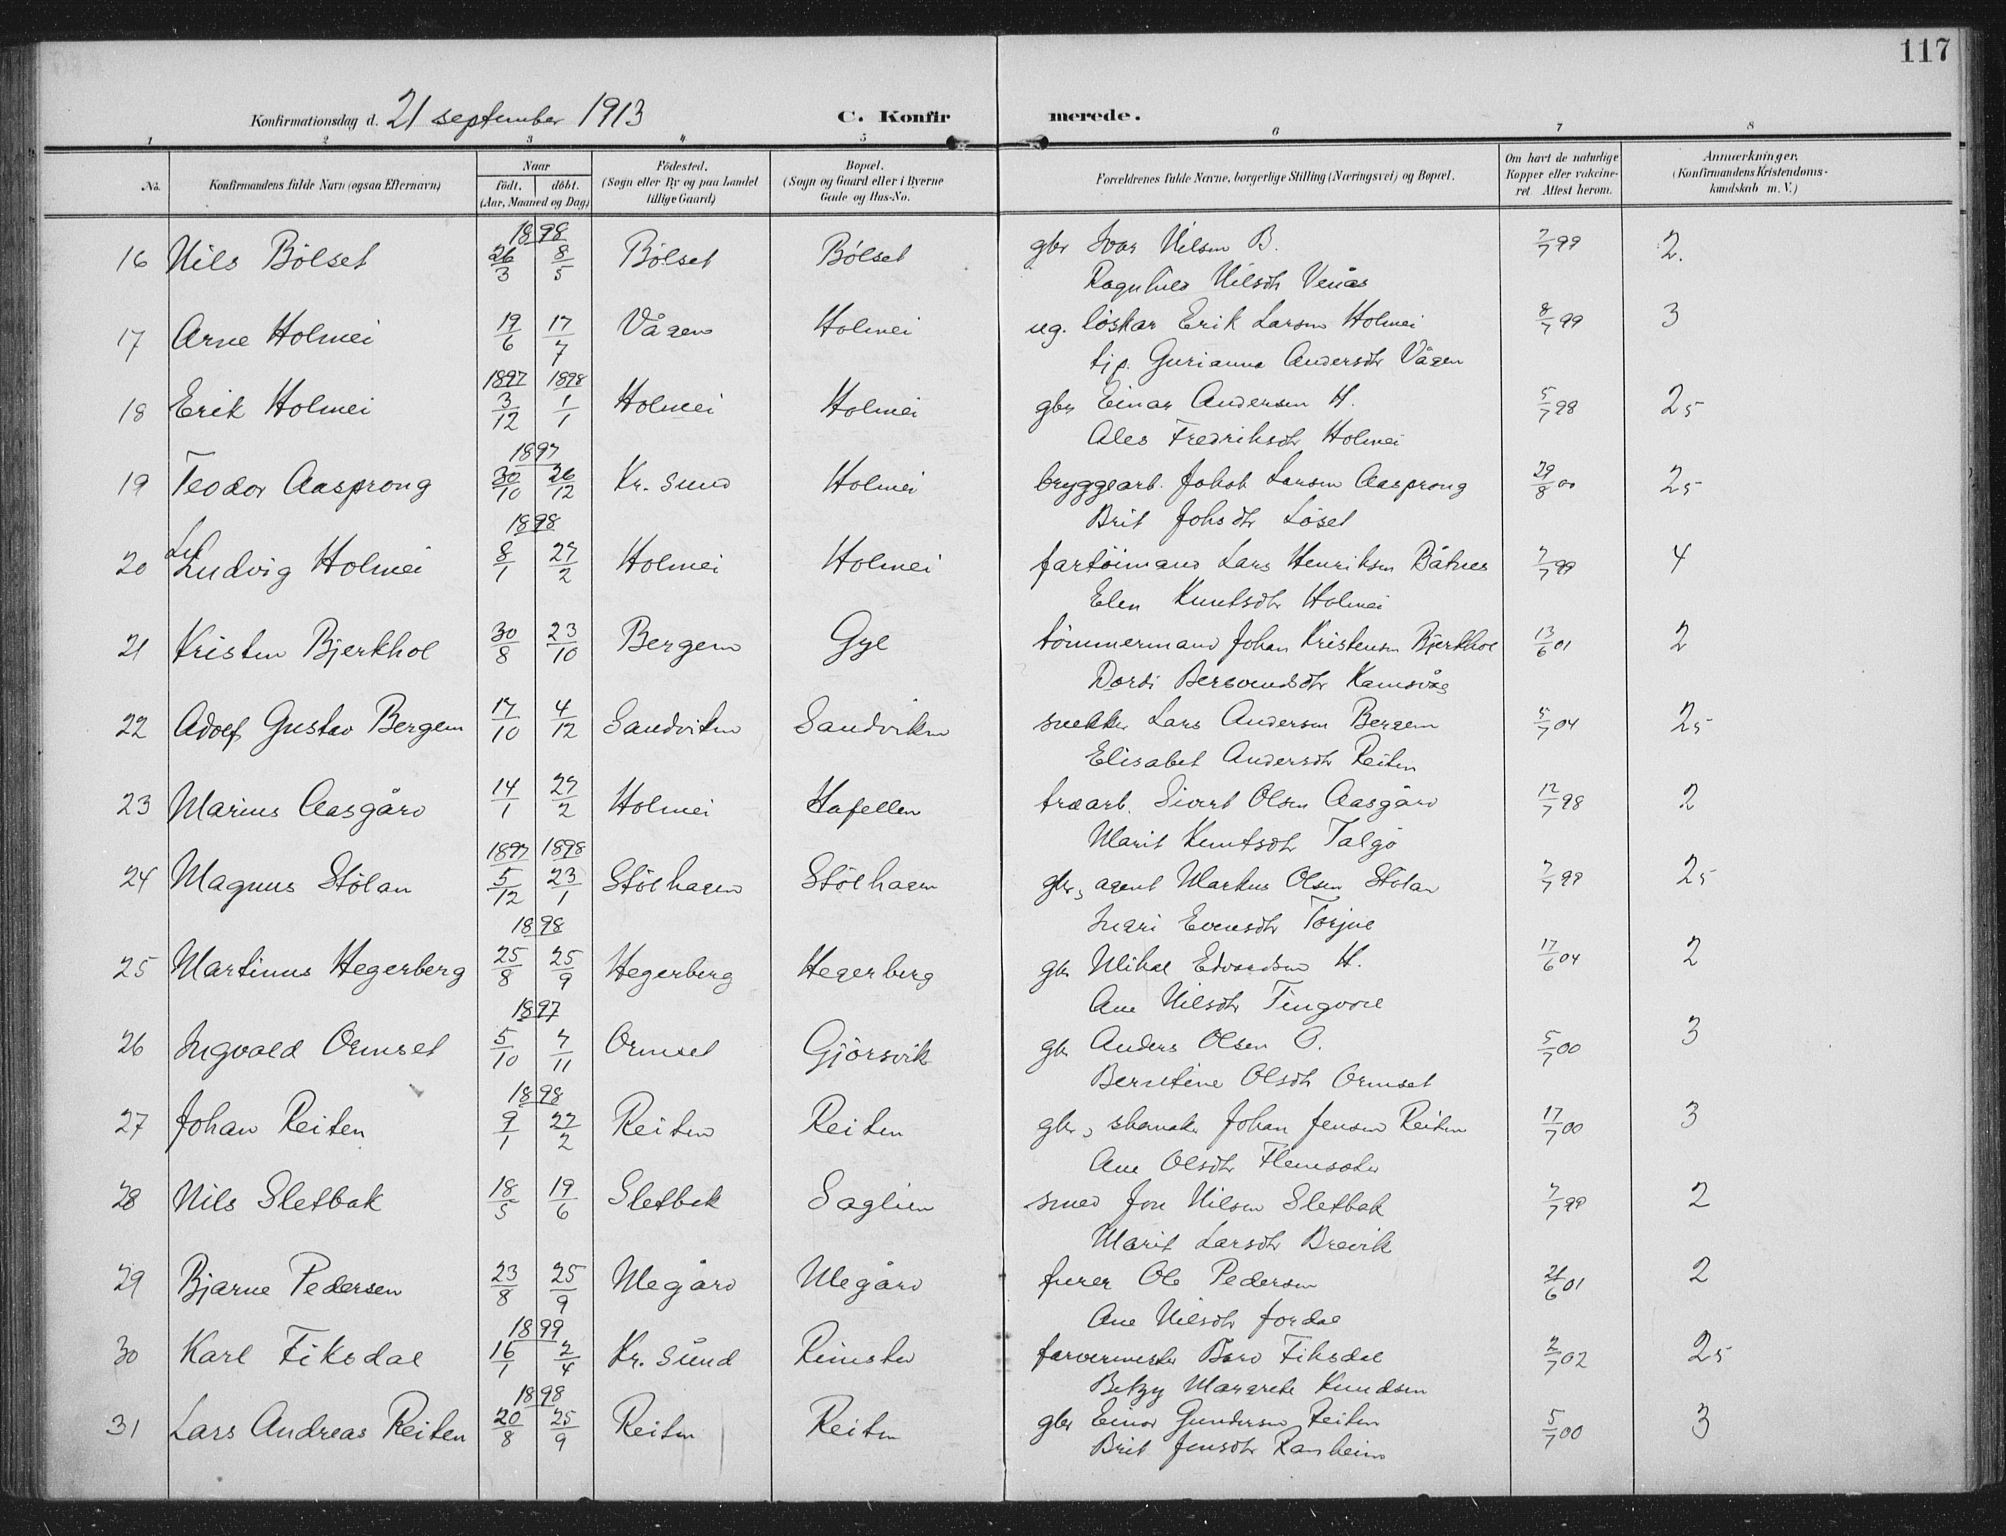 117
Konfirmationsdag d. 21 september 1913 C. Konfirmerede.
1 2 3 4 5 6 7 8
No. Konfirmandens fulde Navn (ogsaa Efternavn) Naar födt. döbt. (Aar, Maaned og Dag) Födested. (Sogn eller By og paa Landet tillige Gaard) Bopæl. (Sogn og Gaard eller i Byerne Gade og Hus-No. Forældrenes fulde Navne, borgerlige Stilling (Næringsvei) og Bopæl. Om havt de naturlige Kopper eller vakcineret. Attest herom. Anmærkninger. (Konfirmandens Kristendomskundskab m. V.)
1898
16 Nils Bölset 26/3 8/5 Bölset Bölset gbr Ivar Nilsen B. 7/7 99 2.
Ragnhild Nilsdtr Venås
17 Arne Holmei 19/6 17/7 Vågen Holmei ug. löskar Erik Larsen Holmei 8/7 99 3
tjp. Gurianna Andersdtr Vågen
1897 1898
18 Erik Holmei 3/12 1/1 Holmei Holmei gbr Einar Andersen H. 5/7 98 25
Ales Fredriksdtr Holmei
1897
19 Teodor Aasprong 30/10 26/12 Kr. sund Holmei bryggearb. Jakob Larsen Aasprong 29/8 00 25
Brit Johsdtr Löset
1898
20 Ludvig Holmei 8/1 27/2 Holmei Holmei fartöimand Lars Henriksen Båtnes 7/7 99 4
Elen Knutsdtr Holmei
21 Kristen Bjerkhol 30/8 23/10 Bergem Gyl tömmermand Johan Kristensen Bjerkhol 13/6 01 2
Dordi Bersvendsdtr Kamsvåg
22 Adolf Gustav Bergem 17/10 4/12 Sandviken Sandviken snekker Lars Andersen Bergem 5/7 04 25
Elisabet Andersdtr Reiten
23 Marius Aasgård 14/1 27/2 Holmei Hafellen træarb. Sivert Olsen Aasgård 12/7 98 2
Marit Knutsdtr Talgö
1897 1898
24 Magnus Stölan 5/12 23/1 Stölhagen Stölhagen gbr, agent Markus Olsen Stölan 7/7 99 25
Inari Evensdtr Torjul
1898
25 Martinus Hegerberg 25/8 25/9 Hegerberg Hegerberg gbr Mikal Edvardsen H. 17/6 04 2
Ane Nilsdtr Tingvoll
1897
26 Ingvald Ormset 5/10 7/11 Ormset Gjörsvik gbr Anders Olsen O. 5/7 00 3
Berntine Olsdtr Ormset
1898
27 Johan Reiten 9/1 27/2 Reiten Reiten gbr, skomaker Johan Jensen Reiten 17/7 00 3
Ane Olsdtr Flemsæter
28 Nils Sletbak 18/5 19/6 Sletbak Saglien smed Jon Nilsen Sletbak 7/7 99 2
Marit Larsdtr Brevik
29 Bjarne Pedersen 23/8 25/9 Megård Megård furer Ole Pedersen 21/6 01 2
Ane Nilsdtr Jordal
1899
30 Karl Fiksdal 16/1 2/4 Kr. sund Rimster farvermester Bård Fiksdal 2/7 02 25
Betzy Margrete Knudsen
1898
31 Lars Andreas Reiten 20/8 25/9 Reiten Reiten gbr Einar Gundersen Reiten 5/7 00 3
Brit Jensdtr Ranheim